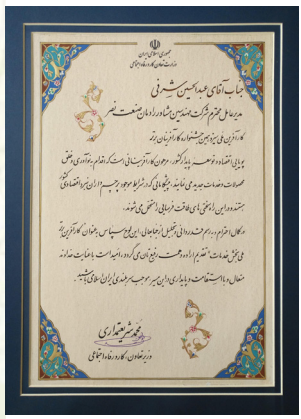 جمهوری اسلامی ایران
وزارت تعاون، کار و رفاه اجتماعی
جناب آقای عبدالحسین شرفی
مدیرعامل محترم شرکت مهندسین مشاور رادمان صنعت نصر
کارآفرین ملی سیزدهمین جشنواره کارآفرینان برتر
پویایی اقتصاد و توسعه پایدار کشور، مرهون کارآفرینانی است که اقدام به نوآوری و خلق
محصولات و خدمات جدید می نمایند، پیشگامانی که در شرایط موجود پرچمداران نبرد اقتصادی کشور
هستند و در این راه سختی های طاقت فرسایی را متحمل می شوند.
در کمال احترام و به رسم قدردانی و تجلیل از جنابعالی، این لوح سپاس به عنوان کارآفرین برتر
ملی بخش خدمات تقدیم اراده و همت رفیعتان می گردد، امید است با عنایت خداوند
متعال و با استقامت و پایداری در این مسیر موجب سربلندی ایران اسلامی باشید.
محمد شریعتمداری
وزیر تعاون، کار و رفاه اجتماعی